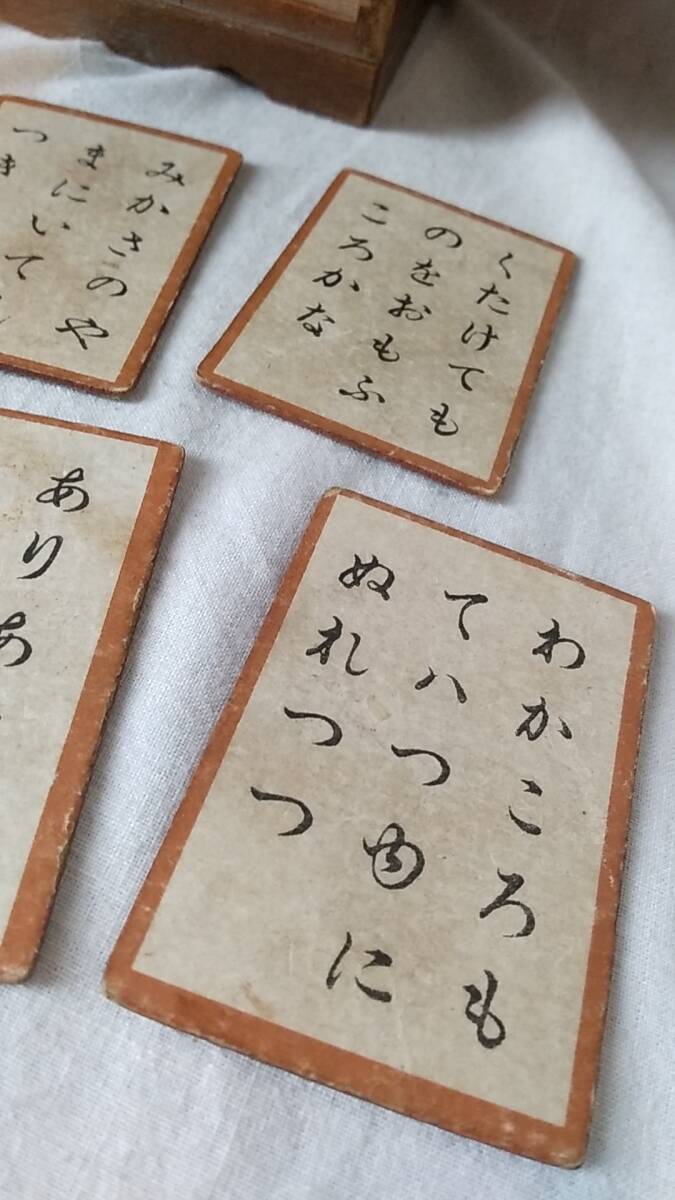 みかさのや
まにいて
つき
くたけても
のをおもふ
ころかな
あり
あ
わかころも
てハつゆに
ぬれつつ